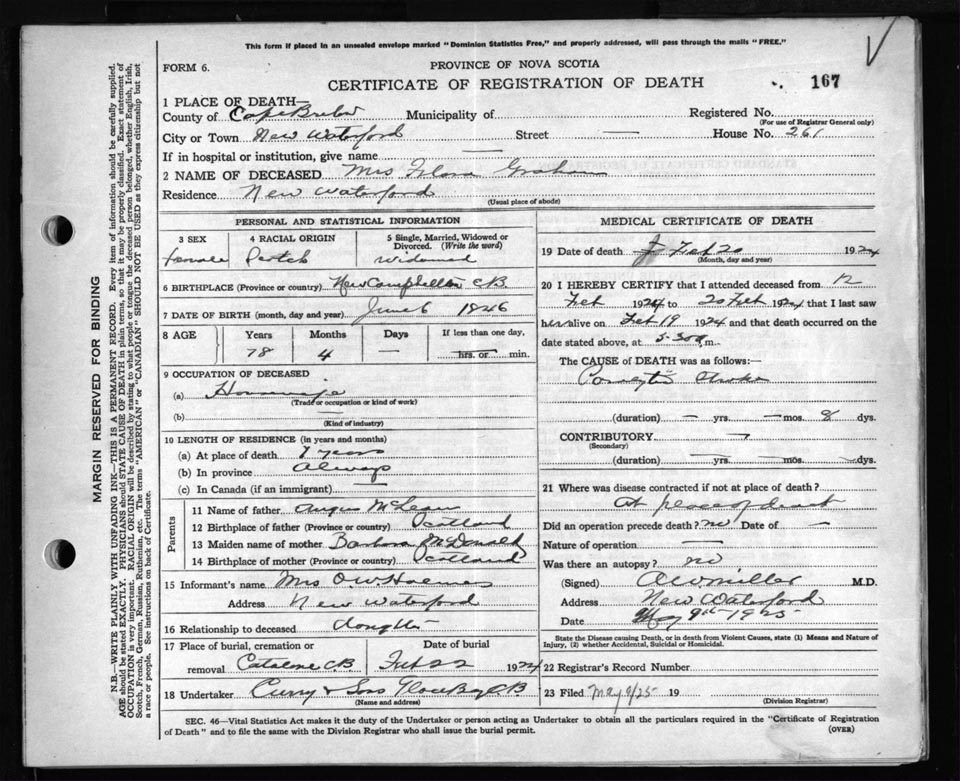 This form if placed in an unsealed envelope marked "Dominion Statistics Free," and properly addressed, will pass through the mails "FREE."
FORM 6.
PROVINCE OF NOVA SCOTIA
CERTIFICATE OF REGISTRATION OF DEATH
167
1 PLACE OF DEATH—
County of Cape Breton Municipality of Registered No.
(For use of Registrar General only)
City or Town New Waterford Street — House No. 261
If in hospital or institution, give name —
2 NAME OF DECEASED Mrs Flora Graham
Residence New Waterford
(Usual place of abode)
PERSONAL AND STATISTICAL INFORMATION
3 SEX 4 RACIAL ORIGIN 5 Single, Married, Widowed or Divorced. (Write the word)
Female Scotch Widowed
6 BIRTHPLACE (Province or country) New Campbellton C.B.
7 DATE OF BIRTH (month, day and year) June 6 1846
8 AGE Years Months Days If less than one day,
78 4 — hrs. or min.
9 OCCUPATION OF DECEASED
(a) Housewife
(Trade or occupation or kind of work)
(b) —
(Kind of industry)
10 LENGTH OF RESIDENCE (in years and months)
(a) At place of death 7 years
(b) In province Always
(c) In Canada (if an immigrant) —
Parents
11 Name of father Angus McLean
12 Birthplace of father (Province or country) Scotland
13 Maiden name of mother Barbara McDonald
14 Birthplace of mother (Province or country) Scotland
15 Informant's name Mrs O.W. Holmes
Address New Waterford
16 Relationship to deceased daughter
17 Place of burial, cremation or removal Date of burial
Catalone CB Feb 22 1924
18 Undertaker Curry & Sons Glace Bay CB
(Name and address)
MEDICAL CERTIFICATE OF DEATH
19 Date of death Feb 20 1924
(Month, day and year)
20 I HEREBY CERTIFY that I attended deceased from 12
Feb 1924 to 20 Feb 1924, that I last saw
her alive on Feb 19 1924 and that death occurred on the
date stated above, at 5.30 m.
The CAUSE of DEATH was as follows:—
(duration) — yrs. — mos. 8 dys.
CONTRIBUTORY —
(Secondary)
(duration) — yrs. — mos. — dys.
21 Where was disease contracted if not at place of death?
At place of death
Did an operation precede death? no Date of —
Nature of operation —
Was there an autopsy? no
(Signed) O W Miller M.D.
Address New Waterford
Date May 9th 1925
State the Disease causing Death, or in death from Violent Causes, state (1) Means and Nature of Injury, (2) whether Accidental, Suicidal or Homicidal.
22 Registrar's Record Number
23 Filed May 9/25 19
(Division Registrar)
SEC. 46—Vital Statistics Act makes it the duty of the Undertaker or person acting as Undertaker to obtain all the particulars required in the "Certificate of Registration
of Death" and to file the same with the Division Registrar who shall issue the burial permit.
(OVER)
MARGIN RESERVED FOR BINDING
N.B.—WRITE PLAINLY WITH UNFADING INK—THIS IS A PERMANENT RECORD. Every item of information should be carefully supplied.
AGE should be stated EXACTLY. PHYSICIANS should STATE CAUSE OF DEATH in plain terms, so that it may be properly classified. Exact statement of
OCCUPATION is very important. RACIAL ORIGIN will be described by stating to what people or tongue the deceased person belonged, whether English, Irish,
Scotch, French, German, Russian, Ruthenian, etc. The terms "AMERICAN" or "CANADIAN" SHOULD NOT BE USED as they express citizenship but not
a race or people. See instructions on back of Certificate.